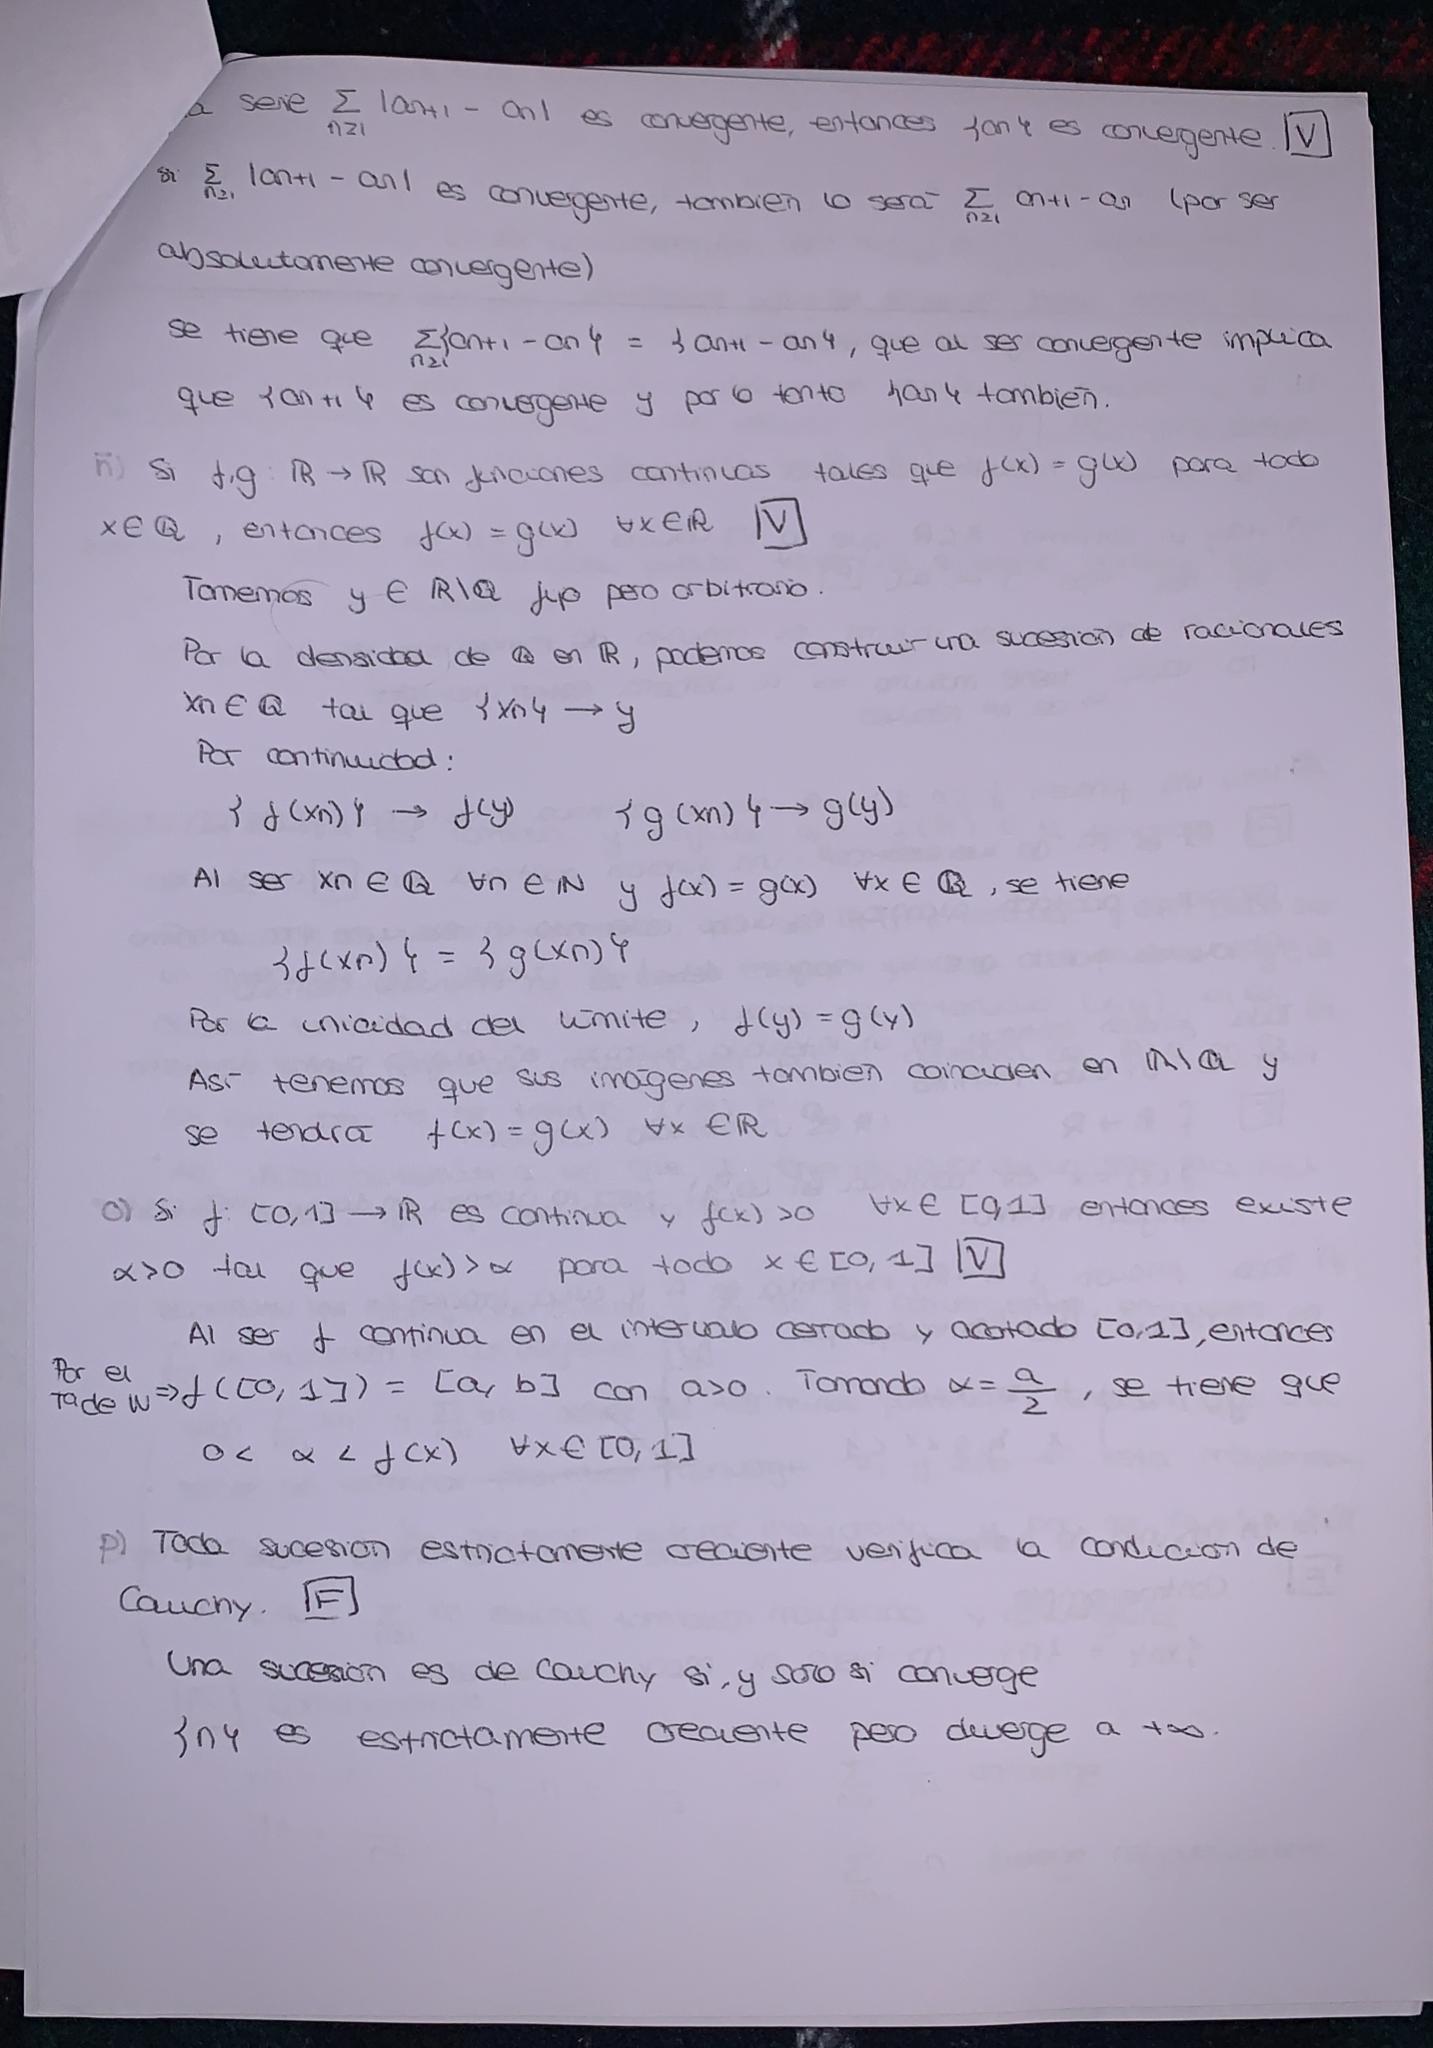 a serie Σ |an+1 - an| es convergente, entonces {an} es convergente. V
n≥1
si Σ |an+1 - an| es convergente, también lo será Σ an+1 - an (por ser
n≥1 n≥1
absolutamente convergente)
se tiene que Σ{an+1 - an} = {an+1 - an}, que al ser convergente implica
n≥1
que {an+1} es convergente y por lo tanto {an} también.
ñ) Si f,g: ℝ → ℝ son funciones continuas tales que f(x) = g(x) para todo
x ∈ ℚ, entonces f(x) = g(x) ∀x ∈ ℝ V
Tomemos y ∈ ℝ\ℚ fijo pero arbitrario.
Por la densidad de ℚ en ℝ, podemos construir una sucesión de racionales
xn ∈ ℚ tal que {xn} → y
Por continuidad:
{f(xn)} → f(y) {g(xn)} → g(y)
Al ser xn ∈ ℚ ∀n ∈ ℕ y f(x) = g(x) ∀x ∈ ℚ, se tiene
{f(xn)} = {g(xn)}
Por la unicidad del límite, f(y) = g(y)
Así tenemos que sus imágenes también coinciden en ℝ\ℚ y
se tendrá f(x) = g(x) ∀x ∈ ℝ
o) Si f: [0,1] → ℝ es continua y f(x) >0 ∀x ∈ [0,1] entonces existe
α>0 tal que f(x) > α para todo x ∈ [0,1] V
Al ser f continua en el intervalo cerrado y acotado [0,1], entonces
Por el
Tª de W ⇒ f([0,1]) = [a, b] con a>0. Tomando α = a/2, se tiene que
0 < α < f(x) ∀x ∈ [0,1]
p) Toda sucesión estrictamente creciente verifica la condición de
Cauchy. F
Una sucesión es de Cauchy si, y solo si converge
{n} es estrictamente creciente pero diverge a +∞.